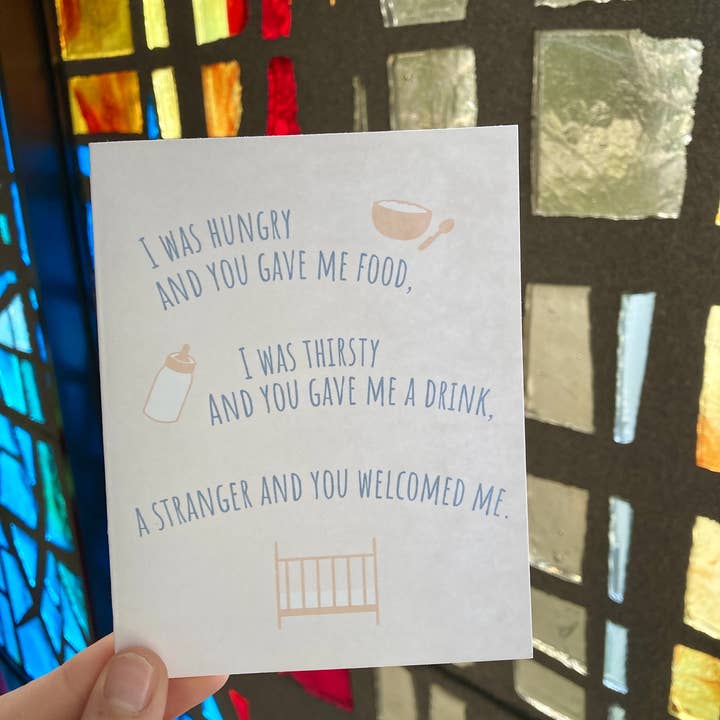 I WAS HUNGRY
AND YOU GAVE ME FOOD,
I WAS THIRSTY
AND YOU GAVE ME A DRINK,
A STRANGER AND YOU WELCOMED ME.